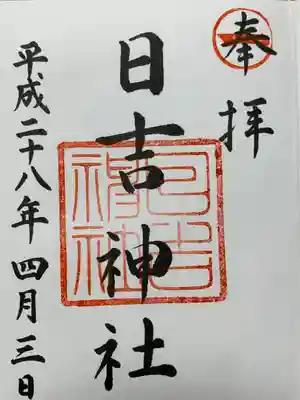 奉拝
日吉神社
日吉神社
平成二十八年四月三日